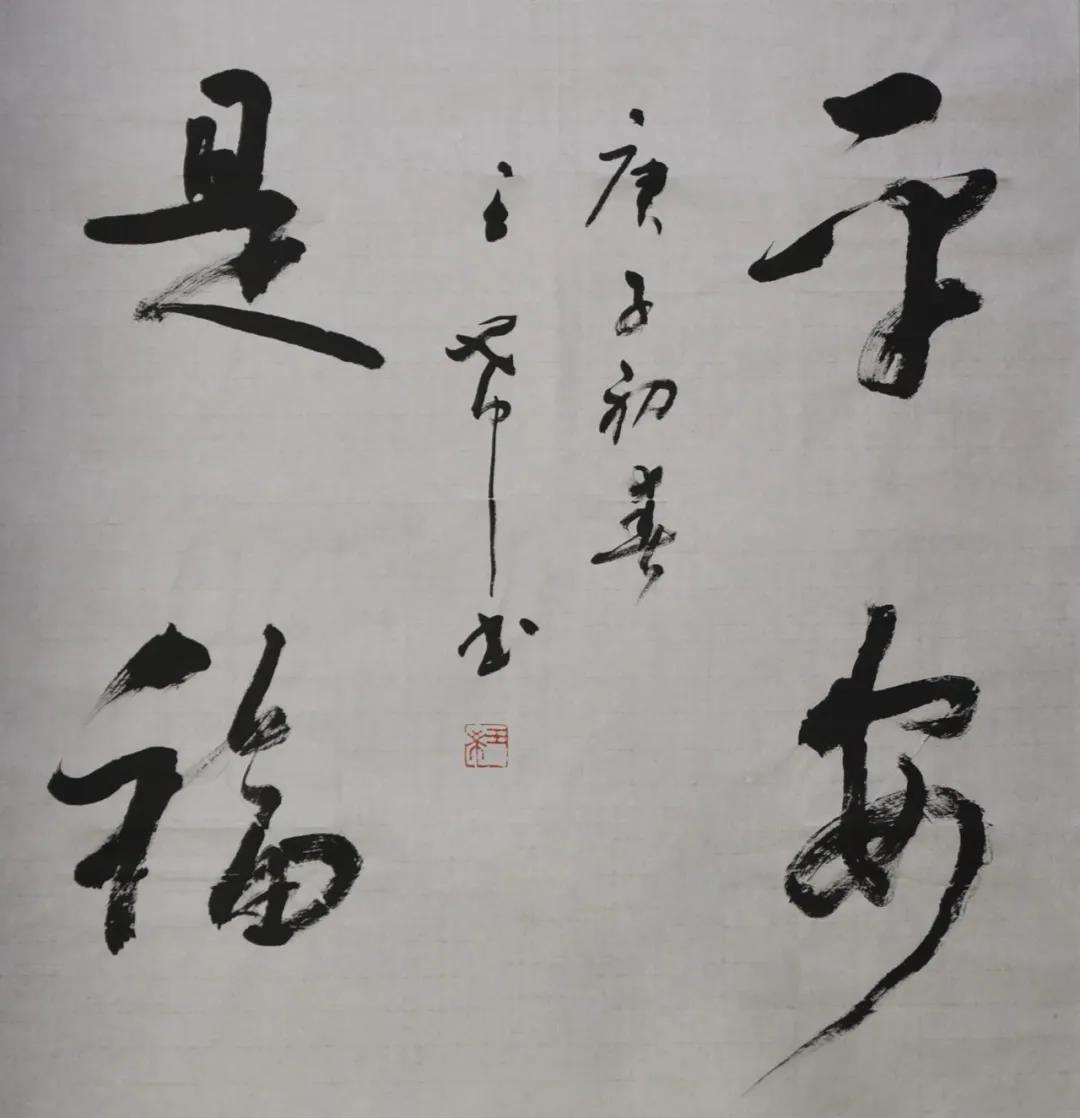 平安
庚子初春
王希书
是福
王希